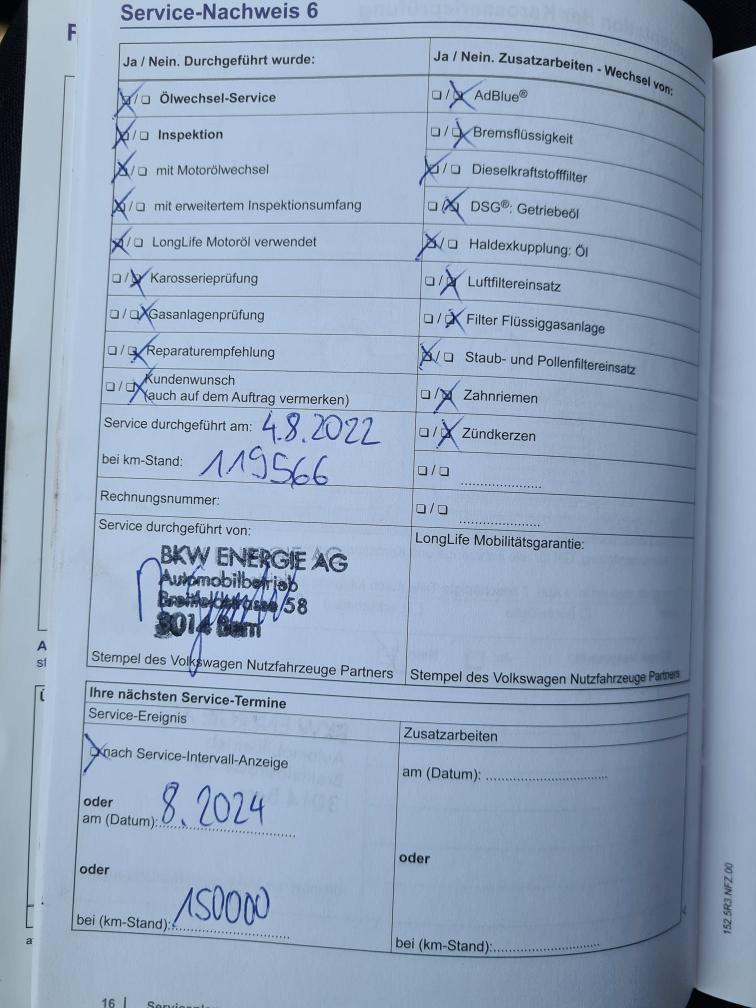 Service-Nachweis 6
Ja / Nein. Durchgeführt wurde:
☒ / ☐ Ölwechsel-Service
☒ / ☐ Inspektion
☒ / ☐ mit Motorölwechsel
☒ / ☐ mit erweitertem Inspektionsumfang
☒ / ☐ LongLife Motoröl verwendet
☐ / ☒ Karosserieprüfung
☐ / ☒ Gasanlagenprüfung
☐ / ☒ Reparaturempfehlung
☐ / ☒ Kundenwunsch
(auch auf dem Auftrag vermerken)
Service durchgeführt am: 4.8.2022
bei km-Stand: 119566
Rechnungsnummer:
Service durchgeführt von:
BKW ENERGIE AG
Automobilbetrieb
Breitfeldstrasse 58
3014 Bern
Stempel des Volkswagen Nutzfahrzeuge Partners
Ja / Nein. Zusatzarbeiten - Wechsel von:
☐ / ☒ AdBlue®
☐ / ☒ Bremsflüssigkeit
☒ / ☐ Dieselkraftstofffilter
☐ / ☒ DSG®: Getriebeöl
☒ / ☐ Haldexkupplung: Öl
☐ / ☒ Luftfiltereinsatz
☐ / ☒ Filter Flüssiggasanlage
☒ / ☐ Staub- und Pollenfiltereinsatz
☐ / ☒ Zahnriemen
☐ / ☒ Zündkerzen
☐ / ☐ ....................
☐ / ☐ ....................
LongLife Mobilitätsgarantie:
Stempel des Volkswagen Nutzfahrzeuge Partners
Ihre nächsten Service-Termine
Service-Ereignis
☒ nach Service-Intervall-Anzeige
oder
am (Datum): 8.2024
oder
bei (km-Stand): 150000
Zusatzarbeiten
am (Datum): ..............................
oder
bei (km-Stand): ..........................
16 |
152.5R3.NFZ.00